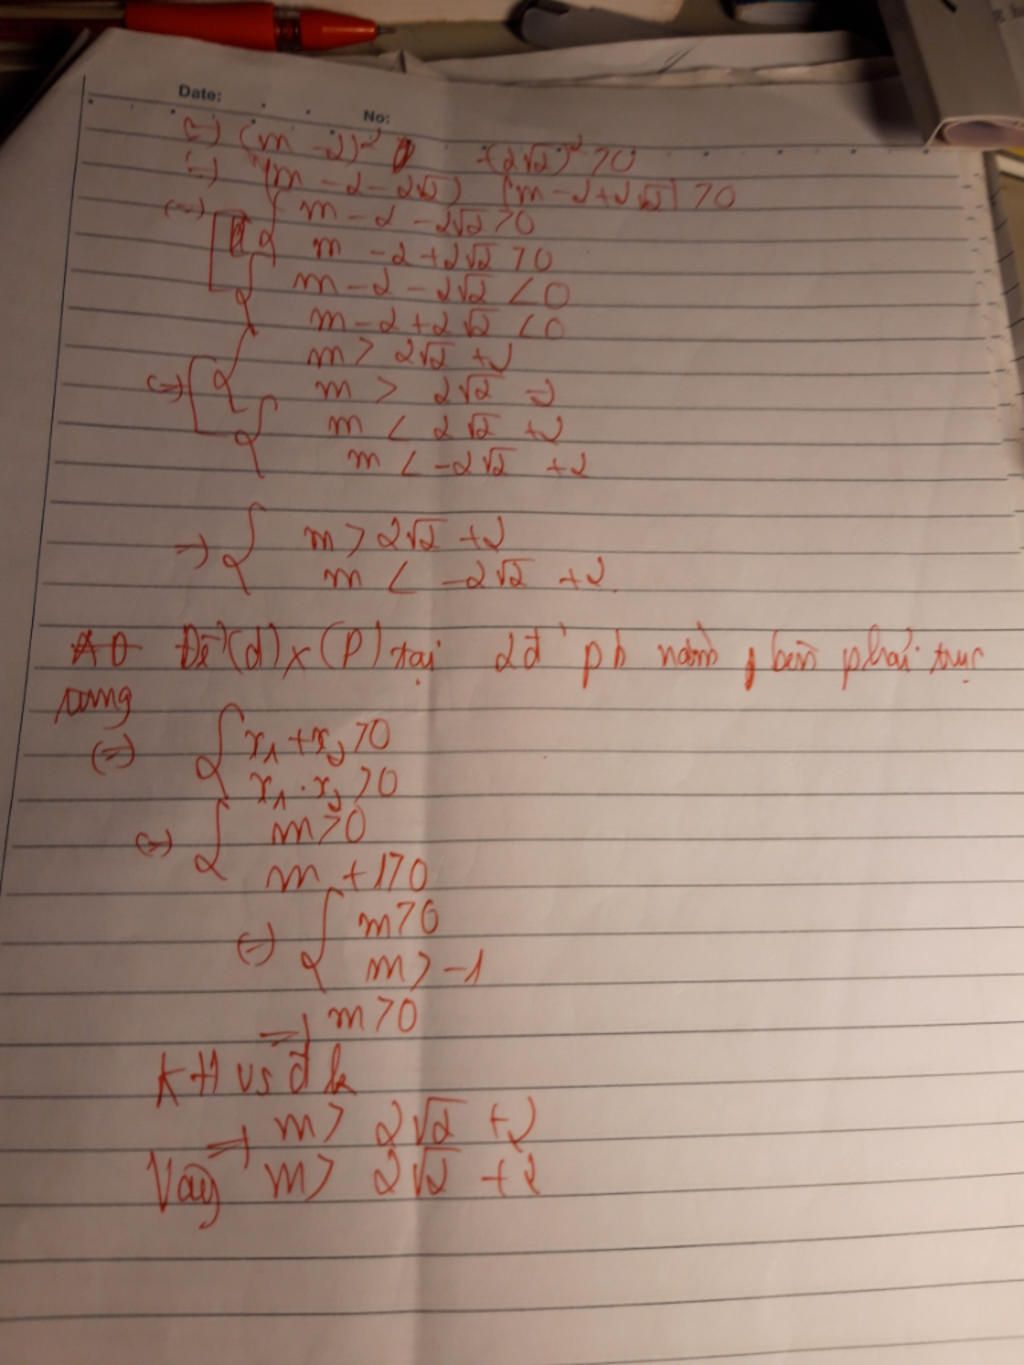 Date:
No:
=) (m - 2)² - (2√2)² > 0
=) (m - 2 - 2√2) (m - 2 + 2√2) > 0
(=) m - 2 - 2√2 > 0
m - 2 + 2√2 > 0
m - 2 - 2√2 < 0
m - 2 + 2√2 < 0
m > 2√2 + 2
(=) m > 2√2 - 2
m < 2√2 + 2
m < -2√2 + 2
=) { m > 2√2 + 2
m < -2√2 + 2
Để (d) x (P) tại 2đ' pb nằm bên phải trục
tung
(=) { x₁ + x₂ > 0
x₁ . x₂ > 0
(=) { m > 0
m + 1 > 0
(=) { m > 0
m > -1
=) m > 0
KH vs đk
=) m > 2√2 + 2
Vậy m > 2√2 + 2